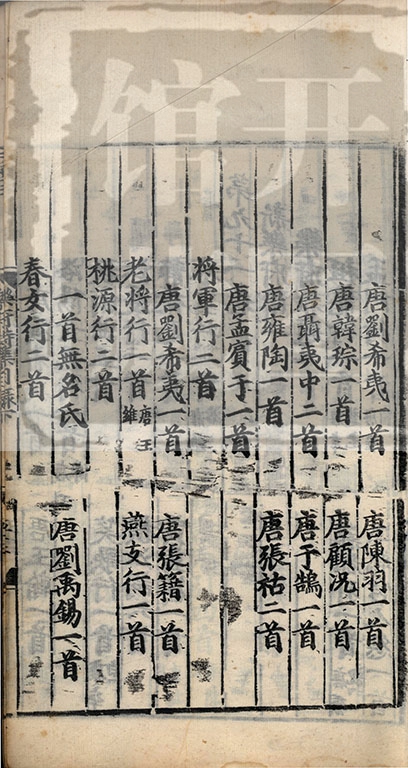 唐劉希夷一首 唐陳羽一首
唐韓琮一首 唐顧况一首
唐聶夷中二首 唐于鵠一首
唐雍陶一首 唐張祜二首
唐孟賓于一首
將軍行二首
唐劉希夷一首 唐張籍一首
老將行一首 唐王維 燕支行一首
桃源行二首
一首無名氏 唐劉禹錫一首
春女行二首